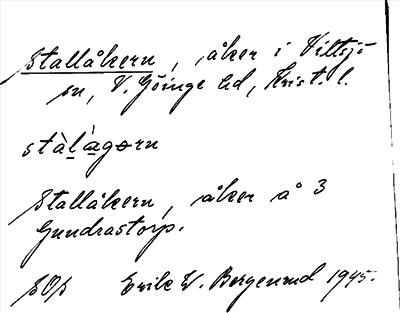 Stallåkern, åker i Vittsjö
sn, V. Göinge hd, Krist. l.
stàl̲à̲gɵrn
Stallåkern, åker å 3
Gundrastorp.
SOs Erik W. Bergenrud 1945.